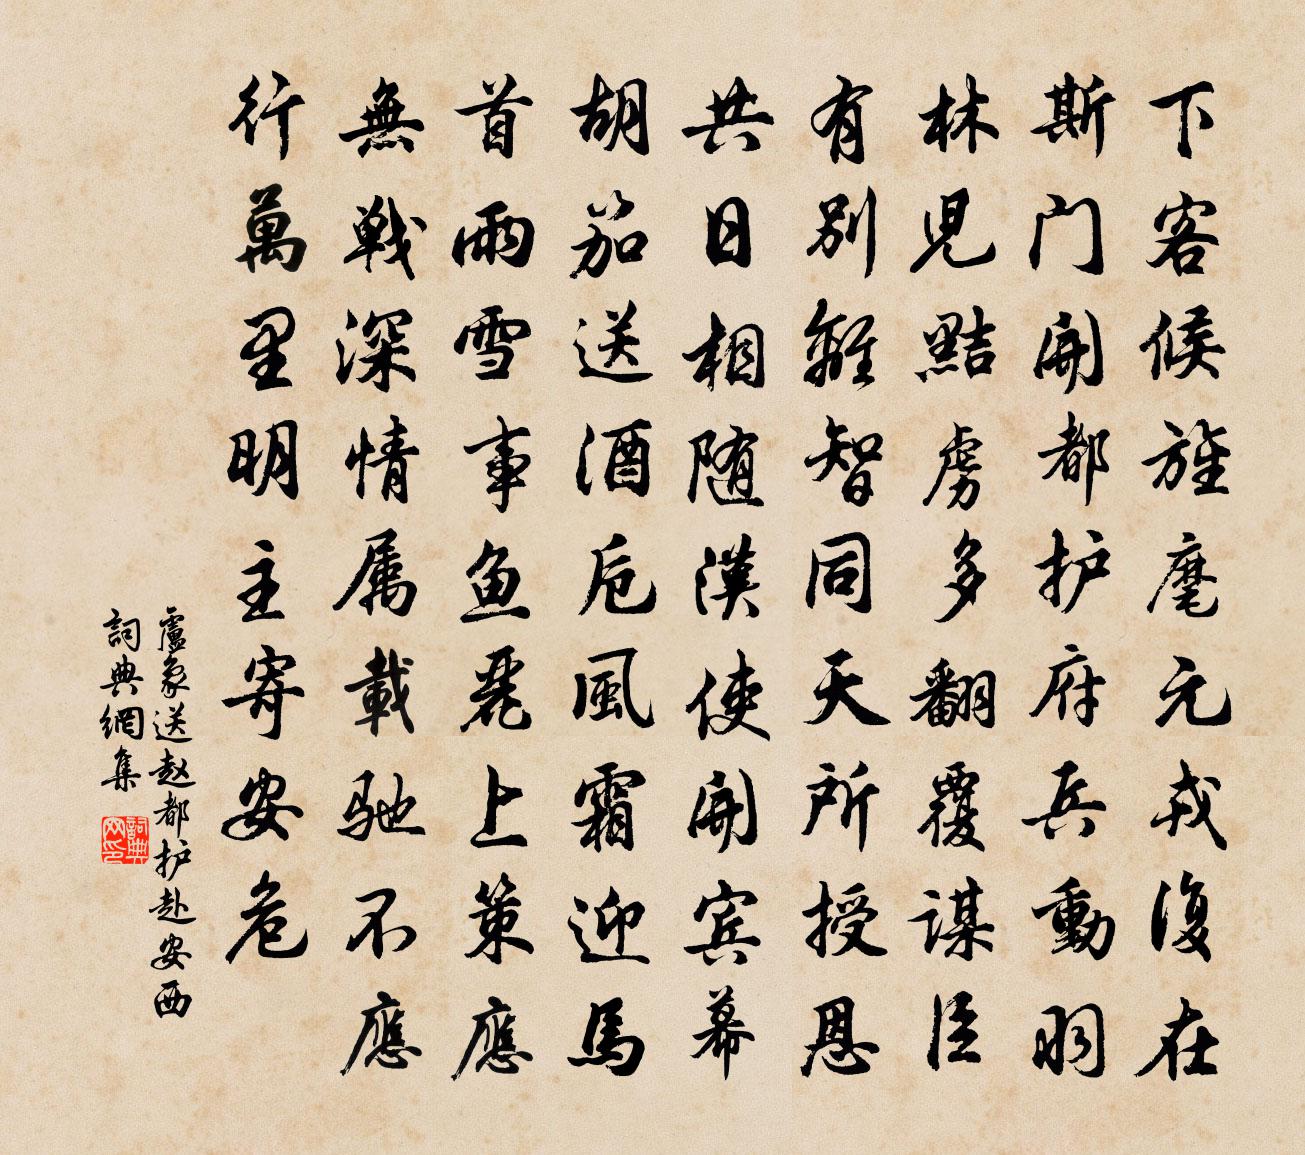 下客候旌麾元戎復在
斯门開都护府兵動羽
林児黠虏多翻覆谋臣
有别離智同天所授恩
共日相随漢使開宾幕
胡笳送酒卮風霜迎馬
首雨雪事鱼麗上策應
無戰深情属載驰不應
行萬里明主寄安危
盧象送赵都护赴安西
詞典網集
詞典网印